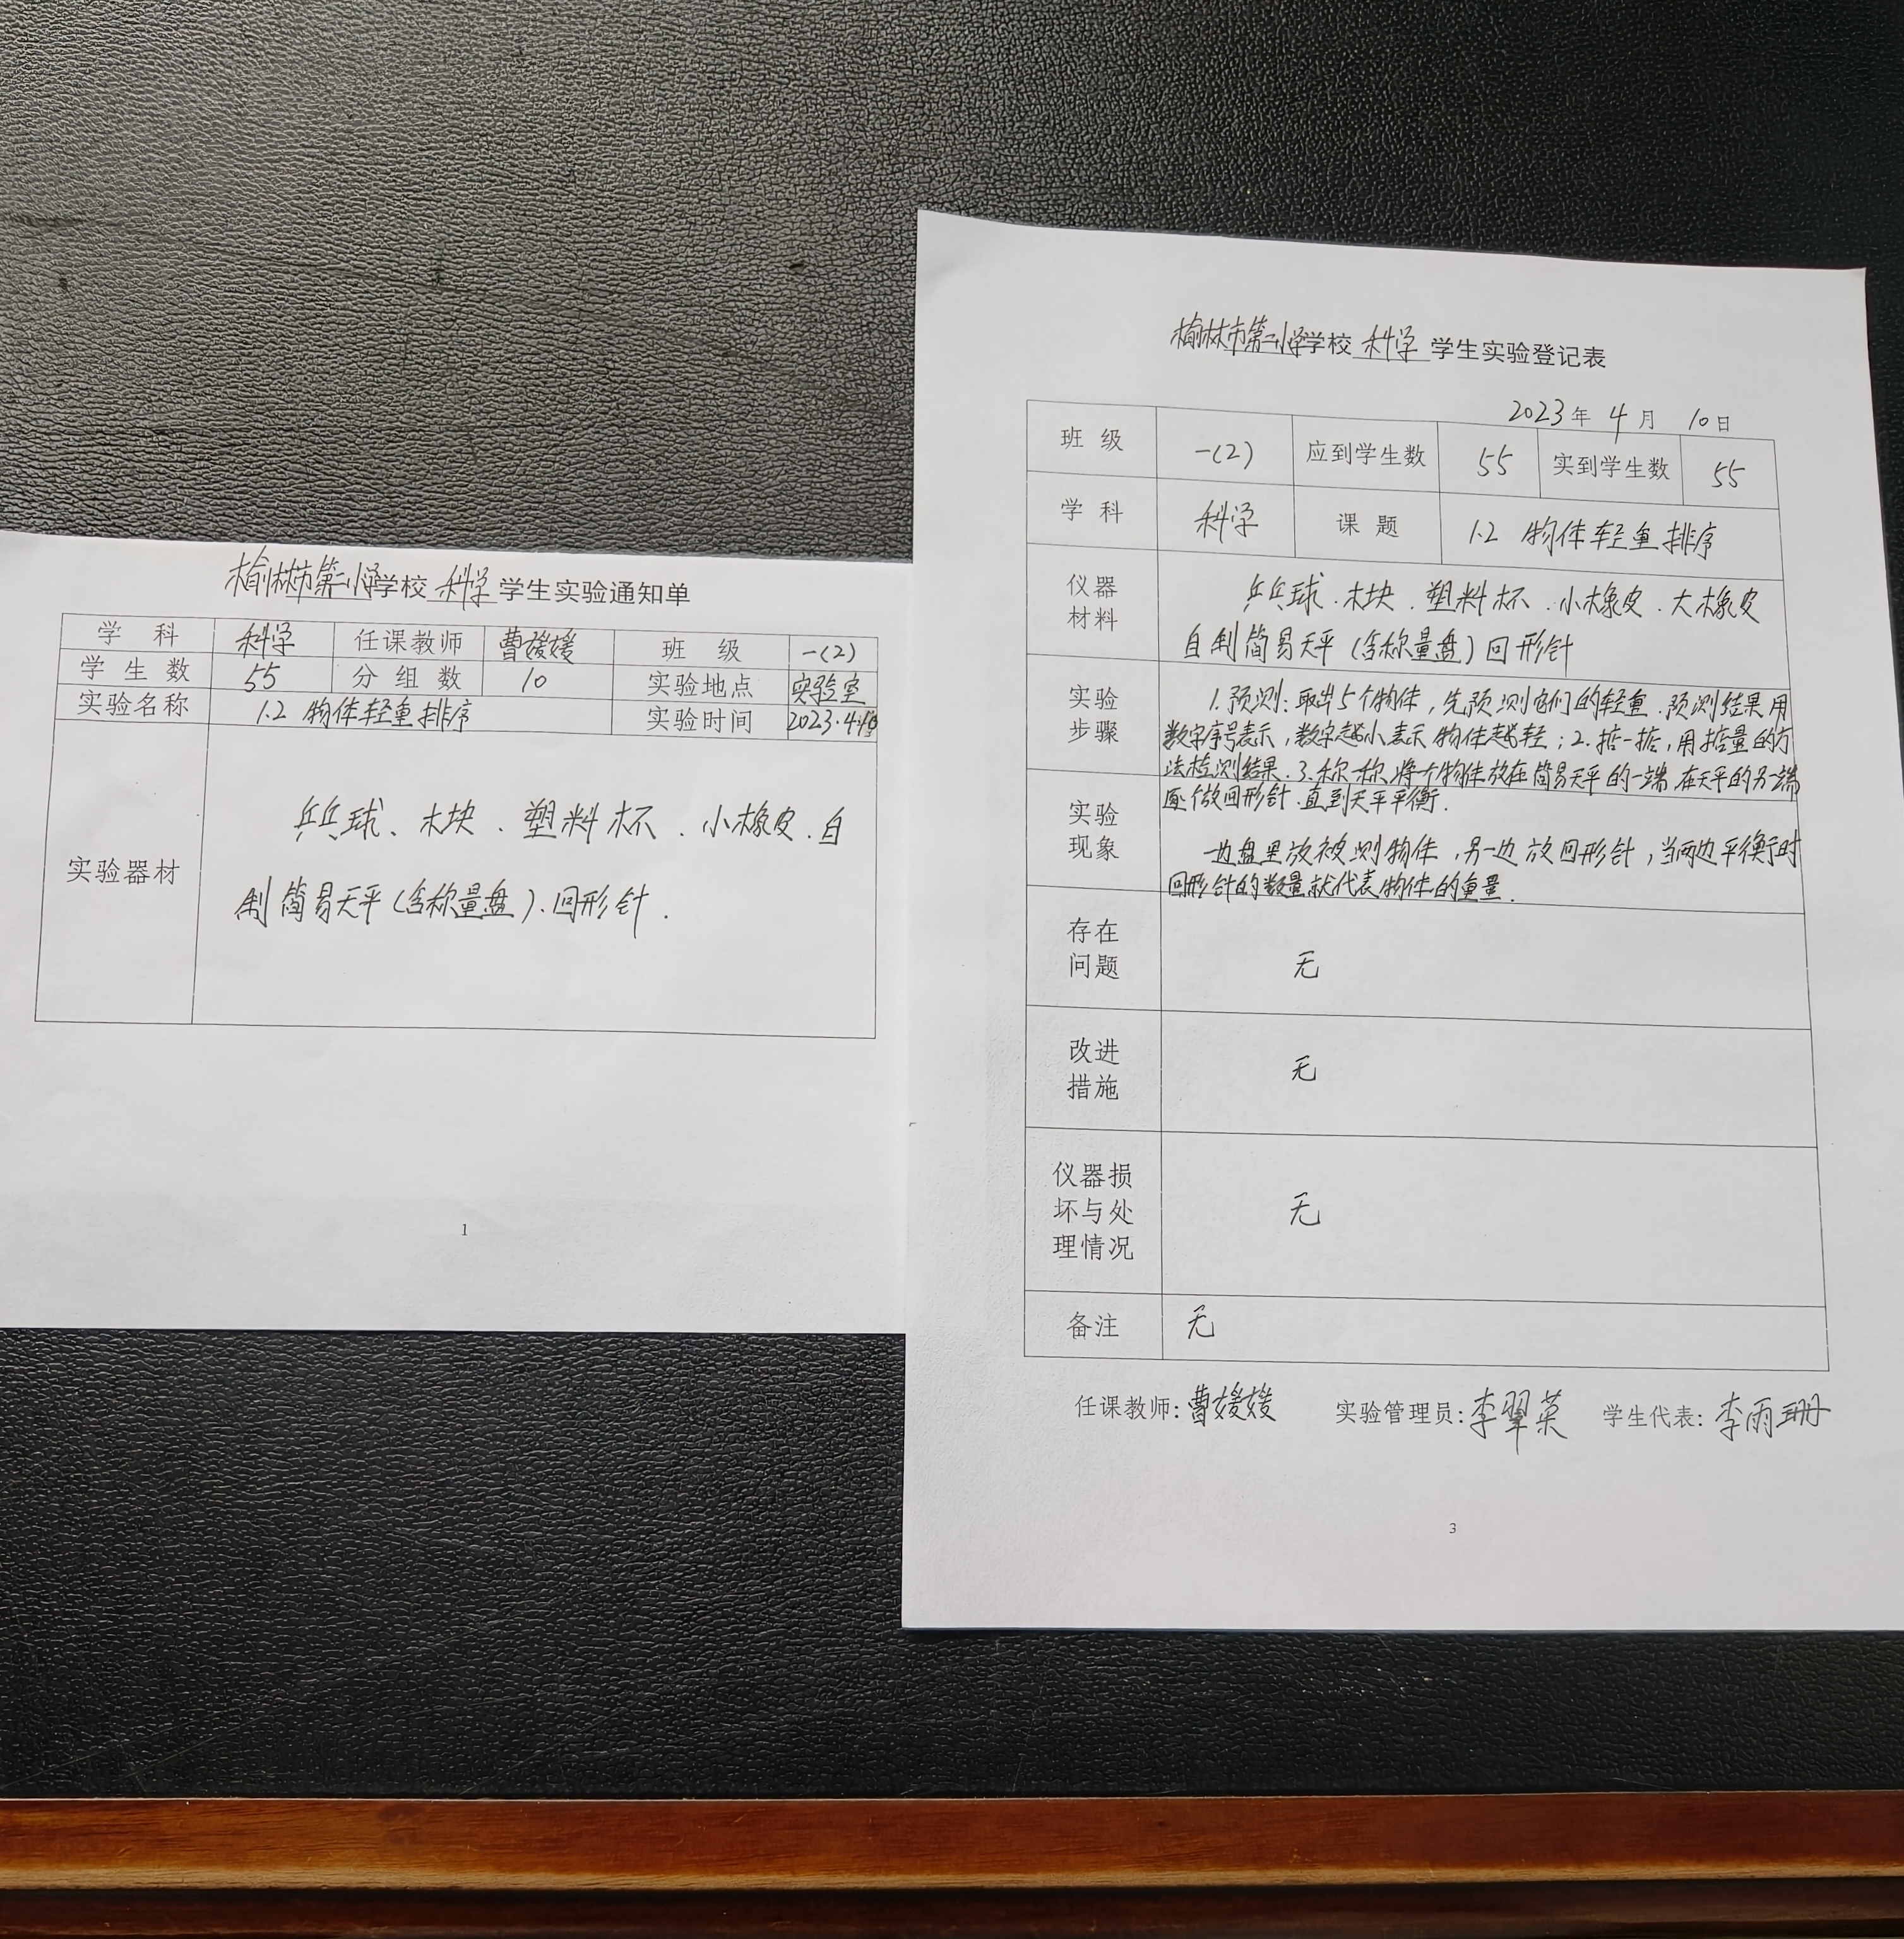 榆林市第二小学学校 科学 学生实验通知单
学 科 科学 任课教师 曹媛媛 班 级 一(2)
学 生 数 55 分 组 数 10 实验地点 实验室
实验名称 1.2 物体轻重排序 实验时间 2023.4.10
实验器材
乒乓球、木块、塑料杯、小橡皮、自
制简易天平(含称量盘)、回形针.
1
榆林市第二小学学校 科学 学生实验登记表
2023 年 4 月 10 日
班 级 一(2) 应到学生数 55 实到学生数 55
学 科 科学 课 题 1.2 物体轻重排序
仪器
材料
乒乓球、木块、塑料杯、小橡皮、大橡皮
自制简易天平(含称量盘)回形针
实验
步骤
1.预测:取出5个物体,先预测它们的轻重.预测结果用
数字序号表示,数字越小表示物体越轻;2.掂一掂,用掂量的方
法检测结果.3.称一称,将一个物体放在简易天平的一端,在天平的另一端
逐个放回形针.直到天平平衡.
实验
现象
一边盘里放被测物体,另一边放回形针,当两边平衡时
回形针的数量就代表物体的重量.
存在
问题
无
改进
措施
无
仪器损
坏与处
理情况
无
备注 无
任课教师:曹媛媛 实验管理员:李翠荣 学生代表:李雨珊
3